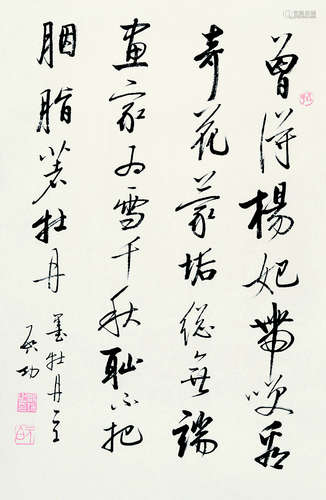 曾得楊妃帶咲看
奇花蒙垢總無端
畫家為雪千秋恥不把
胭脂寫牡丹 墨牡丹之一
啟功